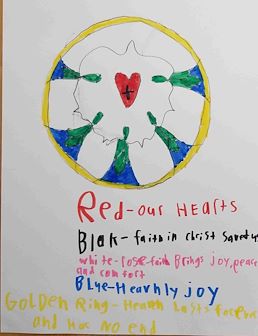 Red-our HEarts
Blak-faith in christ saves us
white-rose-faith Brings joy, peace
and comfort
BLUe-Heavnly joy
GOLDen Ring-Heaven Lasts forever
and Has no end